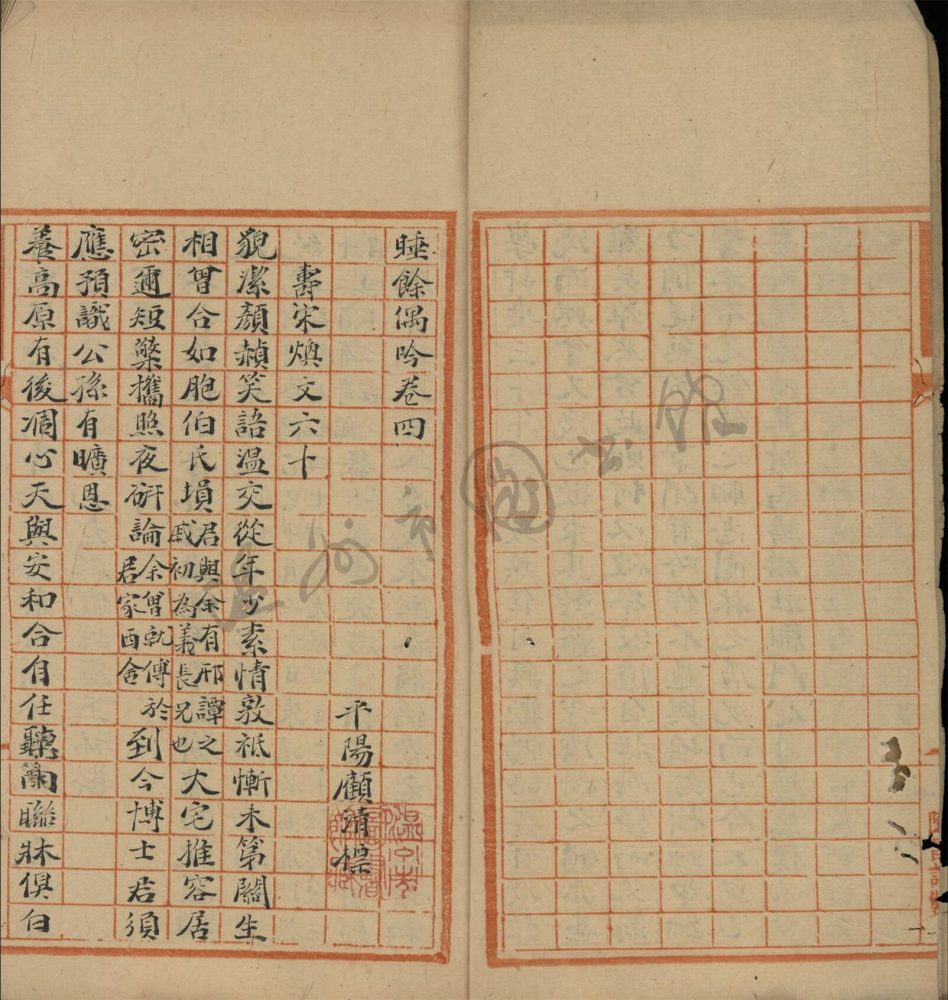 睡餘偶吟卷四
平陽顧清標
壽宋煥文六十
貌潔顏赬笑語溫交從年少素情敦祇慚未第關生
相曾合如胞伯氏塤君與余有邢譚之戚初為義長兄也大宅推容居
密邇短檠攜照夜研論余曾就傅於君家酉舍到今博士君須
應預識公孫有曠恩
養高原有後凋心天與安和合自任聽蘭聯牀俱白